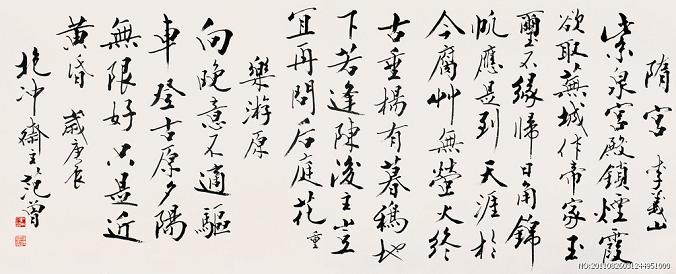 隋宫 李義山
紫泉宫殿鎖煙霞
欲取蕪城作帝家玉
璽不緣歸日角錦
帆應是到天涯於
今腐艸無螢火終
古垂楊有暮鴉地
下若逢陳後主豈
宜再問后庭花 重
樂游原
向晚意不適驅
車登古原夕陽
無限好只是近
黄昏 歲庚辰
抱冲齋主范曾